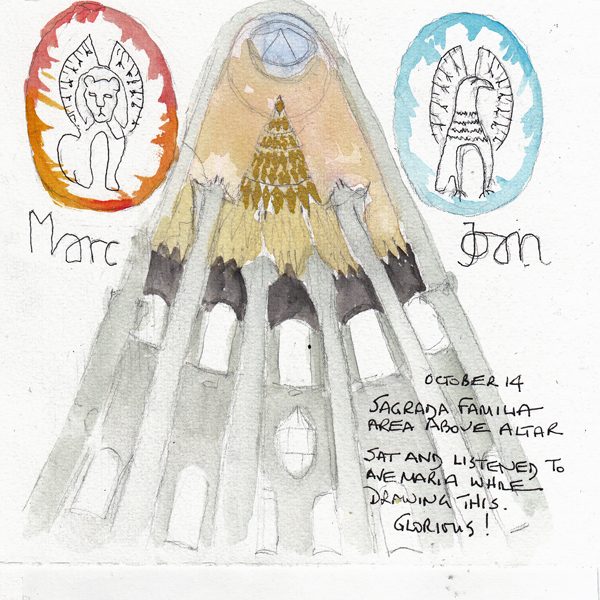 Marc
Joan
OCTOBER 14
SAGRADA FAMILIA
AREA ABOVE ALTAR
SAT AND LISTENED TO
AVE MARIA WHILE
DRAWING THIS.
GLORIOUS!